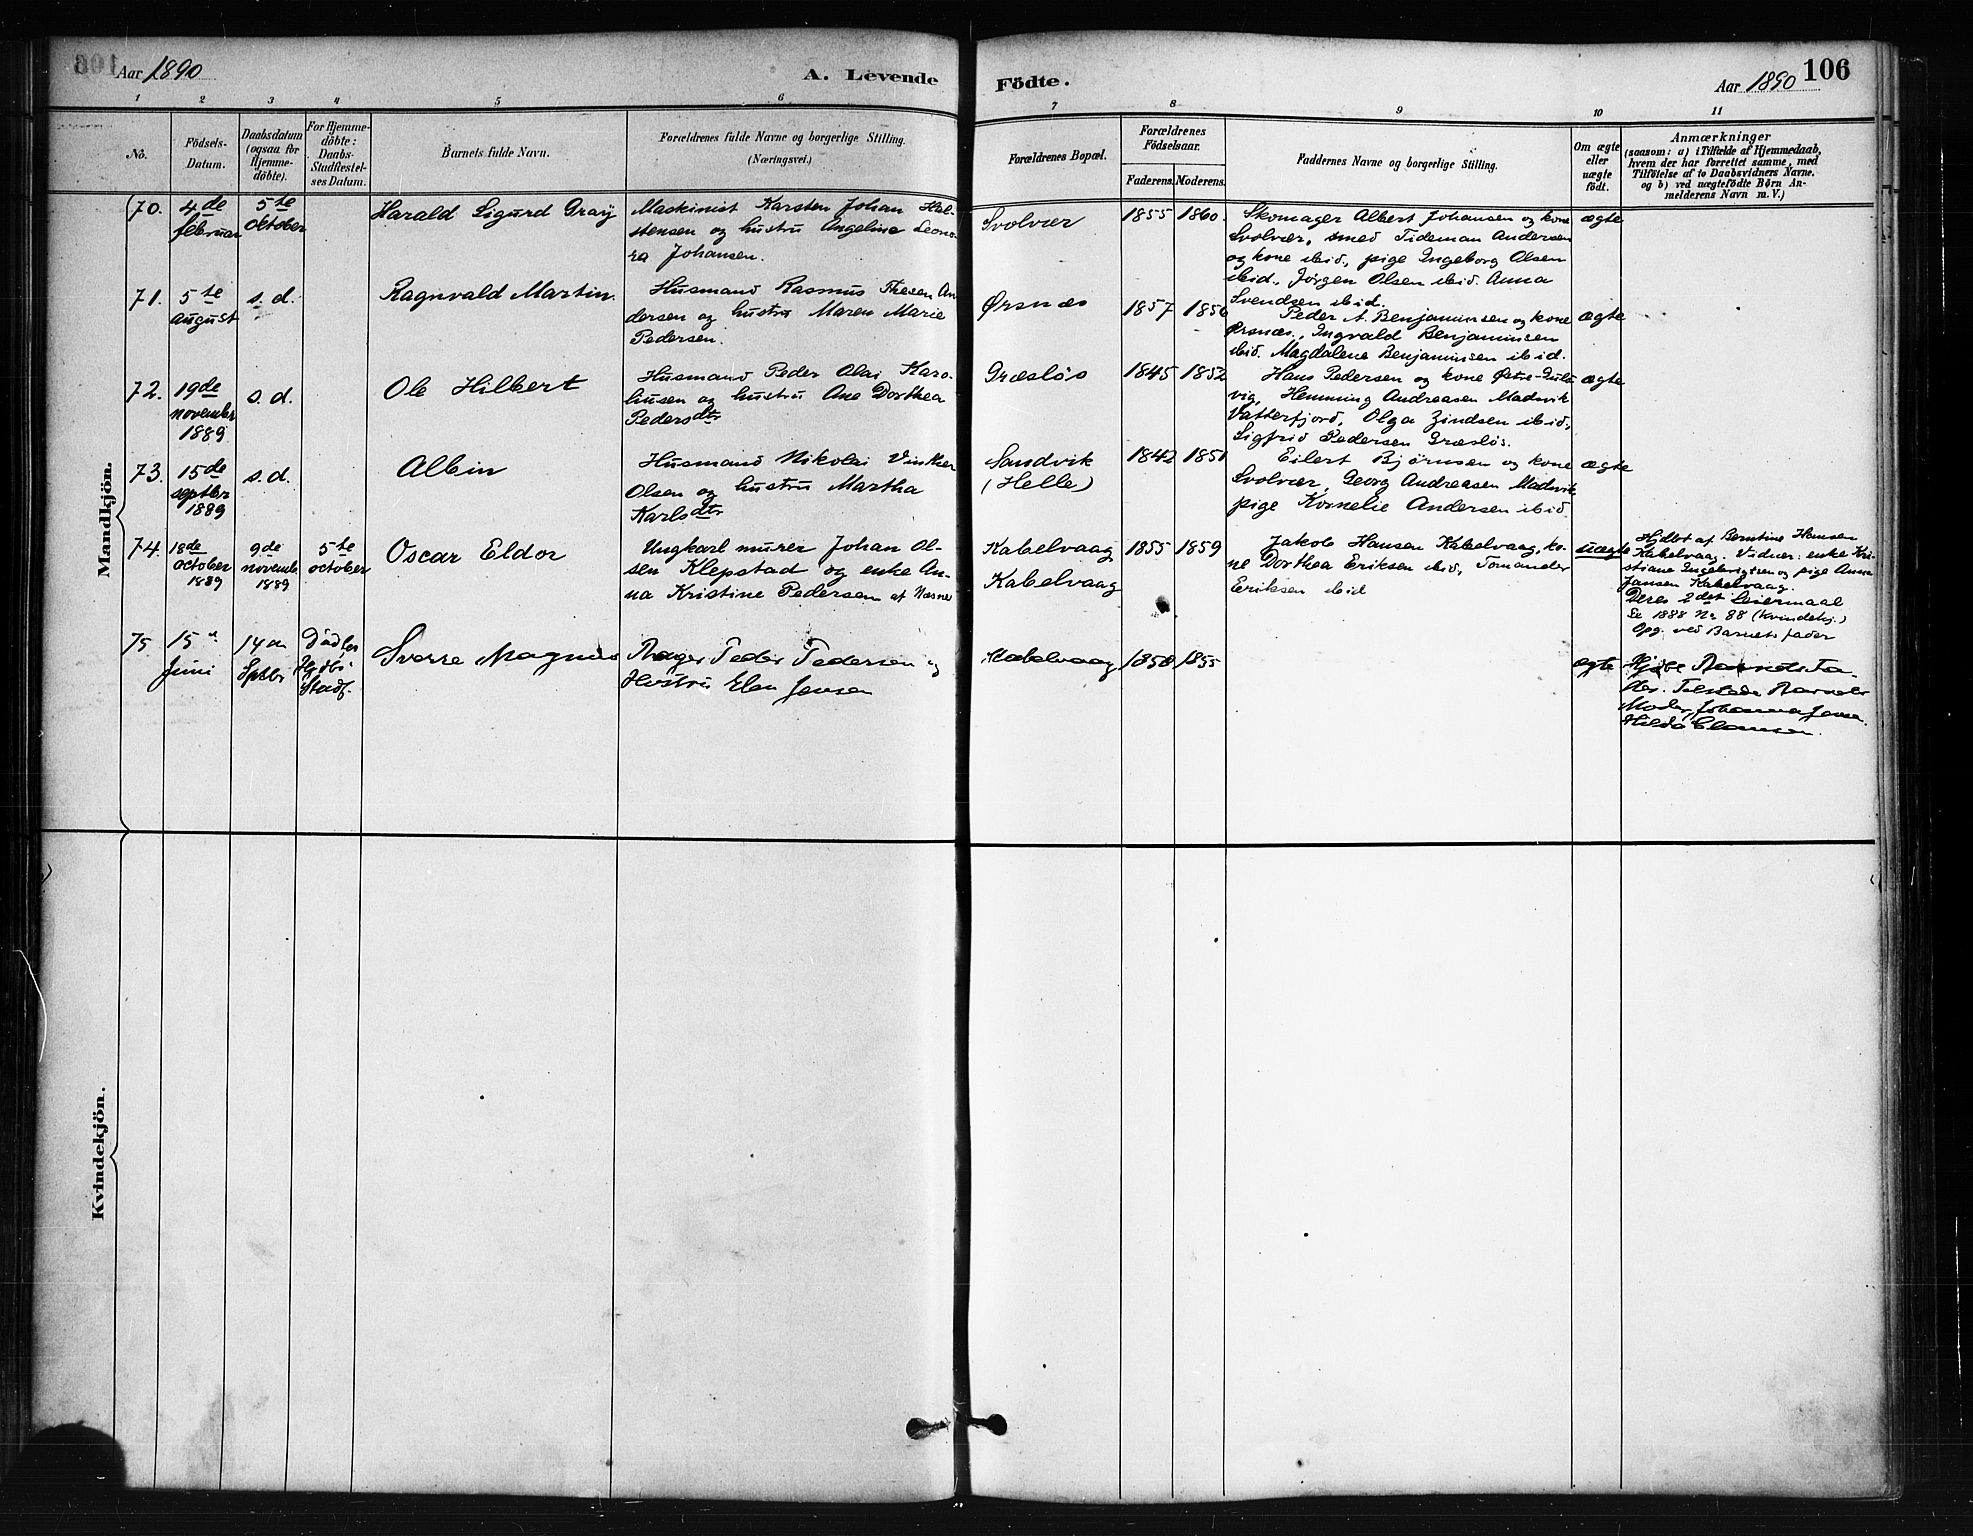 Aar 1890
A. Levende Födte.
Aar 1890
106
1 2 3 4 5 6 7 8 9 10 11
No.
Födsels-
Datum.
Daabsdatum
(ogsaa for
Hjemme-
döbte).
For Hjemme-
döbte:
Daabs-
Stadfæstel-
ses Datum.
Barnets fulde Navn.
Forældrenes fulde Navne og borgerlige Stilling.
(Næringsvei.)
Forældrenes Bopæl.
Forældrenes
Födselsaar.
Faderens. Moderens.
Faddernes Navne og borgerlige Stilling.
Om ægte
eller
uægte
födt.
Anmærkninger
(saasom: a) i Tilfælde af Hjemmedaab,
hvem der har forrettet samme, med
Tilföielse af to Daabsvidners Navne,
og b) ved uægtefödte Børn An-
melderens Navn m. V.)
Mandkjön.
70.
4de
februar
5te
october
Harald Sigurd Gray
Maskinist Karsten Johan Hal-
stensen og hustru Angelina Leono-
ra Johansen.
Svolvær
1855
1860.
Skomager Albert Johansen og kone
Svolvær, smed Tideman Andersen
og kone ibid, pige Ingeborg Olsen
ibid., Jørgen Olsen ibid. Anna
Svendsen ibid.
ægte
71.
5te
august
s.d.
Ragnvald Martin.
Husmand Rasmus Thesen An
dersen og hustru Maren Marie
Pedersen.
Ørsnæs
1857
1856
Peder A. Benjaminsen og kone
Ørsnæs, Ingvald Benjaminsen
ibid. Magdalene Benjaminsen ibid.
ægte
72.
19de
november
1889
s.d.
Ole Hilbert
Husmand Peder Olai Karo-
liusen og hustru Ane Dorthea
Pedersdtr
Græsløs
1845
1852
Hans Pedersen og kone Østre-
vig, Hemming Andreasen Madvik
Vatterfjord, Olga Zindsen ibid,
Sigfrid Pedersen Græsløs.
ægte
73.
15de
septber
1889
s.d.
Albin
Husmand Nikolai Vinther
Olsen og hustru Martha
Karlsdtr
Sandvik
(Helle)
1842
1851
Eilert Bjørnsen og kone
Svolvær, Georg Andreasen Madvik,
pige Kornelie Andersen ibid
ægte
74.
18de
october
1889
9de
november
1889
5te
october
Oscar Eldor
Ungkarl murer Johan Ol-
sen Klepstad og enke An-
na Kristine Pedersen af Næsne
Kabelvaag
Kabelvaag
1855
1859
Jakob Hansen Kabelvaag, ko-
ne Dorthea Eriksen ibid, Tomander
Eriksen ibid
uægte
Hjdbt af Berntine Hansen
Kabelvaag. Vidner: enke Kri-
stiane Ingebrigtsen og pige Anna
Jansen Kabelvaag.
Deres 2det Leiermaal
Se 1888 No 88 (Kvindekj.)
Opg. ved Barnets fader
75.
15
Juni
14
Sptbr
Död
Hjdb.
Stadf.
Sverre Magnus
Bager Peder Pedersen og
Hustru Elen Jensen
Kabelvaag
1858
1855
ægte
Hjdbt Barnets Fa-
der. Tilstede Barnets
Moder, Johanna Jensen
Hilda Clausen.
Kvindekjön.